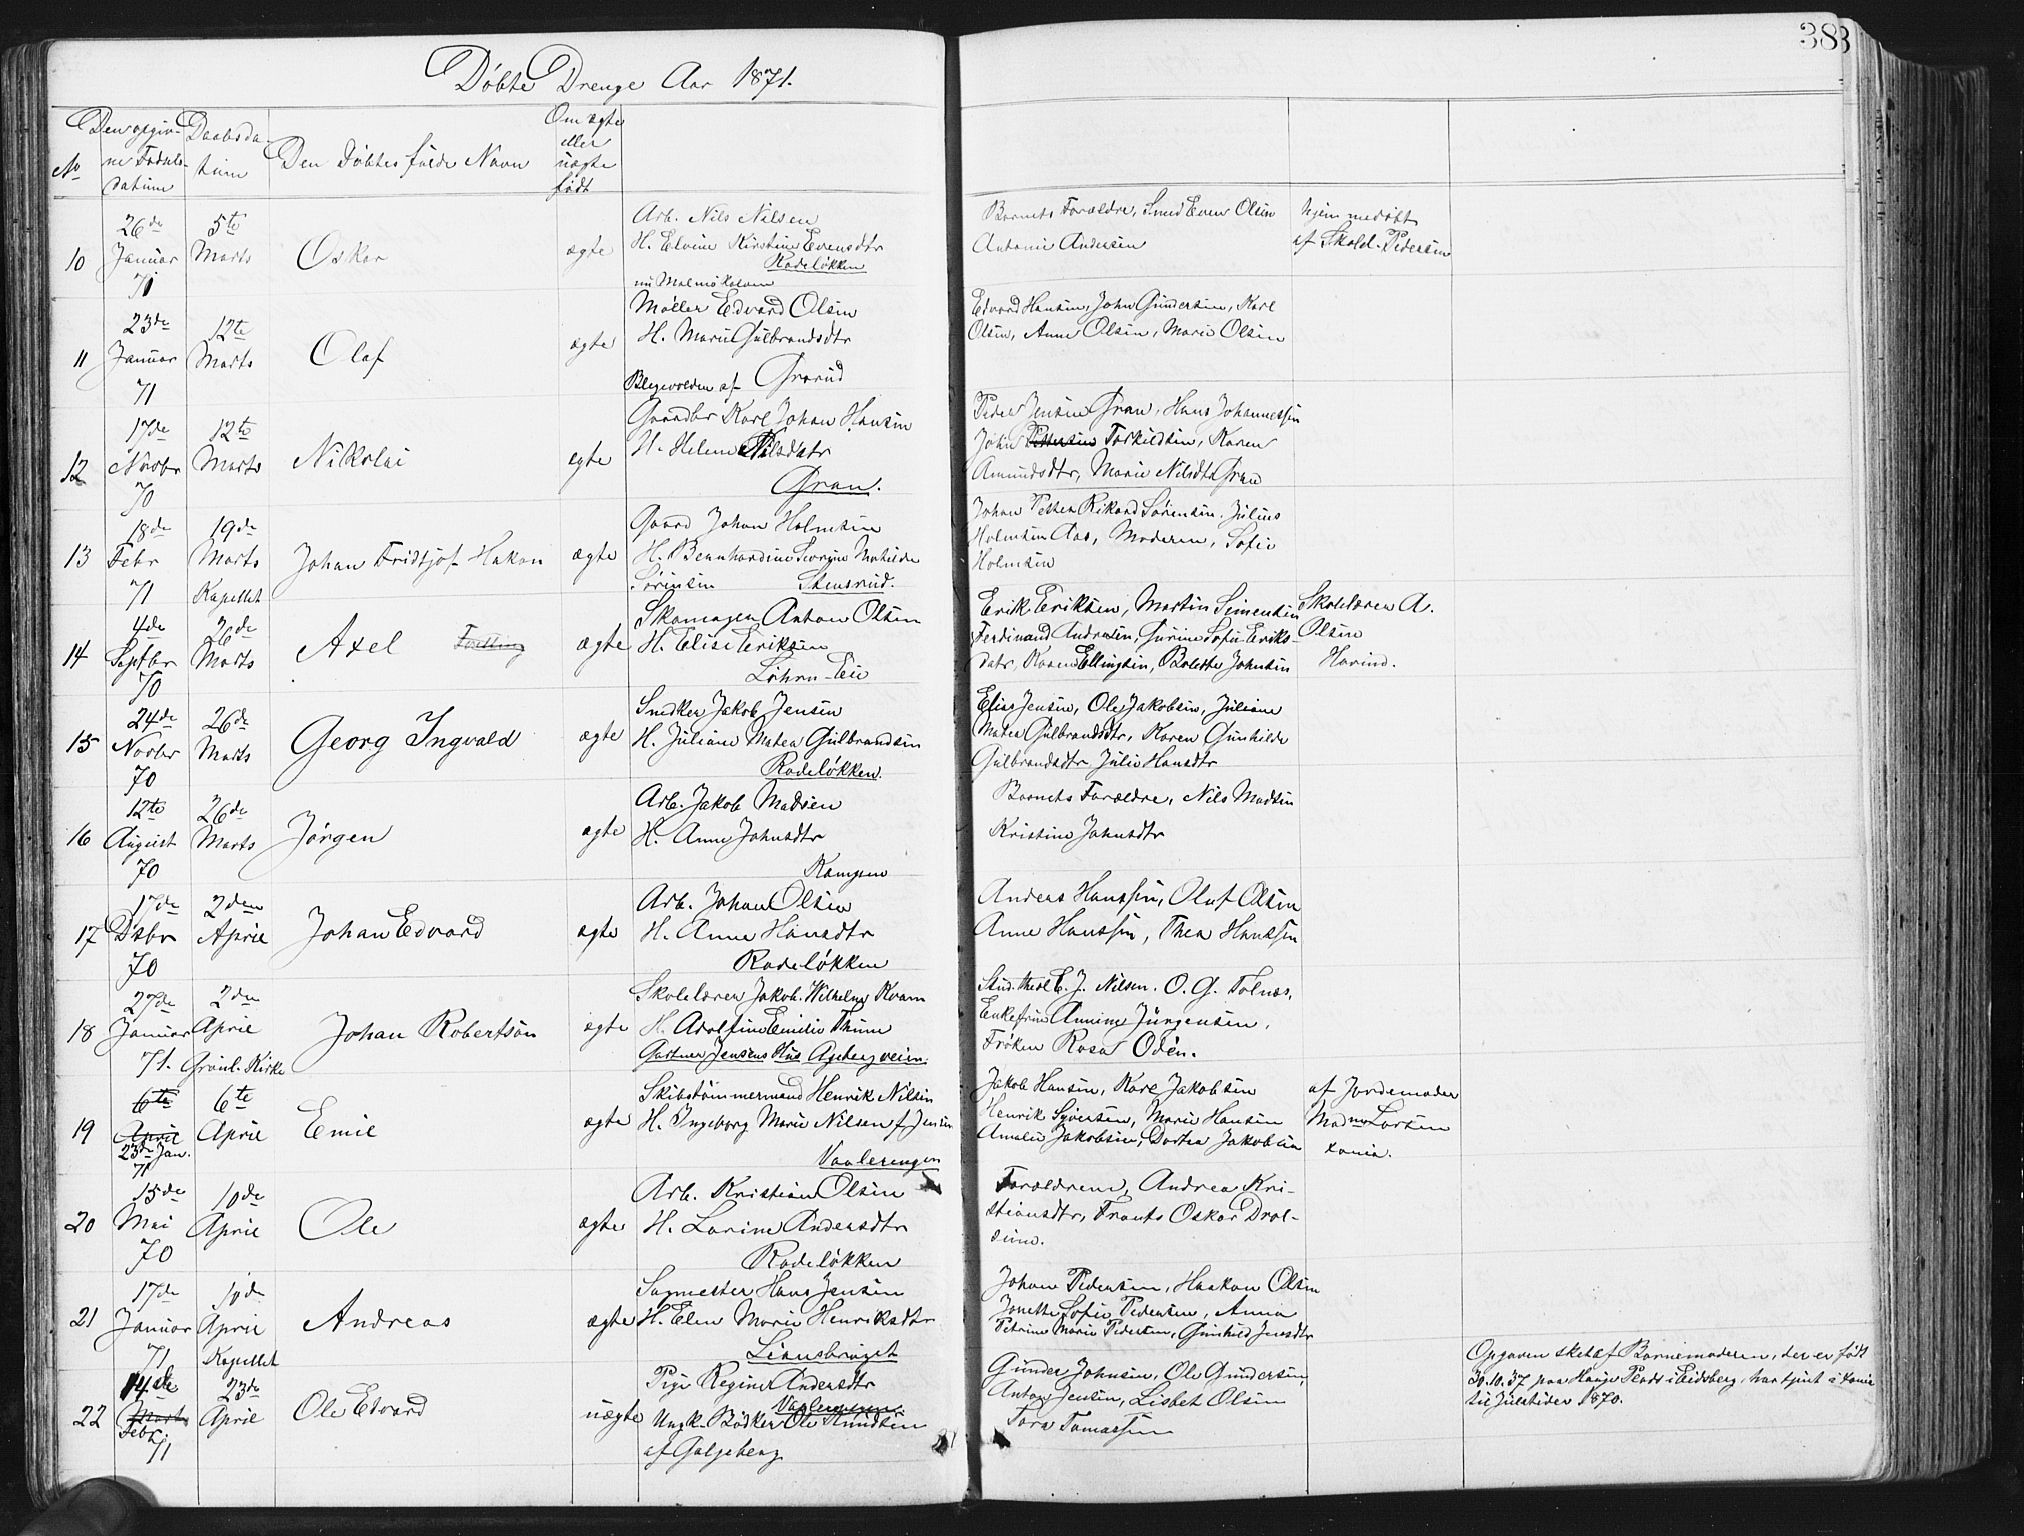 38
Døbte Drenge Aar 1871.
No
Den opgiv-
ne Fødsels-
datum
Daabsda-
tum
Den Døbtes fulde Navn
Om ægte
eller
uægte
født
10
26de
Januar
71
5te
Marts
Oskar
ægte
Arb. Nils Nilsen
H. Elvine Kirstine Evensdtr
Rodeløkken
Barnets Forældre, Smed Even Olsen
Antonie Andersen
hjemmedøbt
af Skolel. Pedersen
11
23de
Januar
71
12te
Marts
Olaf
ægte
Møller Edvard Olsen
H. Marie Gulbrandsdtr
Blegevolden af Grorud
Edvard Hansen, John Gundersen, Karl
Olsen, Anne Olsen, Marie Olsen
12
17de
Novbr
70
12te
Marts
Nikolai
egte
Gaardbr Karl Johan Hansen
H. Helene Nilsdatr
Gran.
Peder Jensen Gran, Hans Johannessen
John Pettersen Torkildsen, Karen
Amundsdtr, Marie Nilsdtr Gran
13
18de
Febr
71
19de
Marts
Kapellet
Johan Fridtjof Hakon
ægte
Gaard Johan Holmsen
H. Bernhardine Severine Mathilde
Sørensen Stensrud.
Johan Petter Rikard Sørensen. Julius
Holmsen Aas, Moderen, Sofie
Holmsen
14
4de
Septbr
70
26de
Marts
Axel
ægte
Skomager Anton Olsen
H. Elise Eriksen
Løhren-Eie
Erik Eriksen, Martin Simensen
Ferdinand Andresen, Gurine Sofie Eriks-
datr, Karen Ellingsen, Bolette Johnsen
Skolelærer A.
Olsen
15
24de
Novbr
70
26de
Marts
Georg Ingvald
ægte
Snedker Jakob Jensen
H. Juliane Matea Gulbrandsen
Rodeløkken.
Elias Jensen, Ole Jakobsen, Juliane
Matea Gulbrandsdtr, Karen Gunhilde
Gulbrandsdtr, Julie Hansdtr
16
12te
August
70
26de
Marts
Jørgen
ægte
Arb. Jakob Madsen
H. Anne Johnsdtr
Kampen
Barnets Forældre, Nils Madsen
Kristine Johnsdtr
17
17de
Dsbr
70
2den
April
Johan Edvard
ægte
Arb. Johan Olsen
H. Anne Hansdtr
Rodeløkken
Anders Hanssen, Oluf Olsen
Anne Hanssen, Thea Hanssen
18
27de
Januar
71.
2den
April
Grønl. Kirke
Johan Robertson
ægte
Skolelærer Jakob Wilhelm Kvam
H. Adolfine Emilie Thune
Gartner Jensens Hus Agebergveien
Stud. theol E. J. Nilsen. O. G. Tolnæs,
Enkefrue Annine Jürgensen,
Frøken Rosa Odén.
19
6te
April
23de Jan.
71
6te
April
Emil
ægte
Skibstømmermand Henrik Nilsen
H. Ingeborg Marie Nilsen f. Jensen
Vaalerengen
Jakob Hansen, Karl Jakobsen
Henrik Syversen, Marie Hansen
Amalie Jakobsen, Dortea Jakobsen
af Jordemoder
Madme Larsen
20
15de
Mai
70
10de
April
Ole
ægte
Arb. Kristian Olsen
H. Larine Andersdtr
Rodeløkken
Forældrene, Andrea Kri-
stiansdtr, Frants Oskar Drol-
sum.
21
17de
Januar
71
10de
April
Kapellet
Andreas
ægte
Sagmester Hans Jensen
H. Elen Marie Henriksdtr
Liansbruget
Johan Pedersen, Haakon Olsen
Jonette Sofie Pedersen, Anna
Petrine Marie Pedersen, Gunhild Jensdtr
22
14de
Marts
Febr
71
23de
April
Ole Edvard
uægte
Pige Regine Andersdtr
Vaalerengen
Ungk. Bødker Ole Knudsen
af Galgeberg
Gunder Johnsen, Ole Gundersen,
Anton Jensen, Lisbet Olsen
Tora Tomassen
Opgaven sket af Barnemoderen, der er født
30.10.37 paa Hauge Plads i Eidsberg, har tjent i Xania
til Juletider 1870.